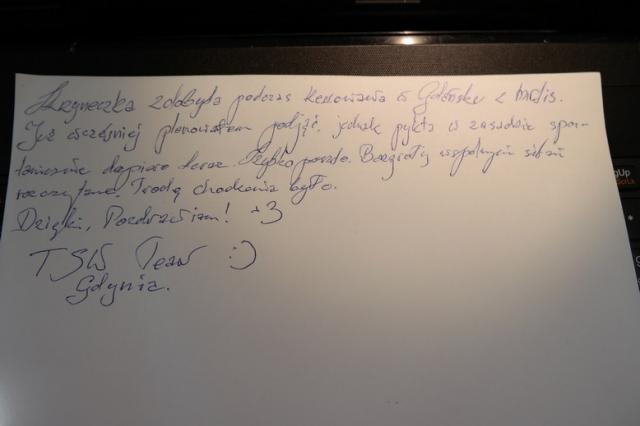 Skrzyneczka zdobyta podczas keszowania w Gdańsku z bids.
Już wcześniej planowałem podjąć, jednak pykła w zasadzie spon-
tanicznie dopiero teraz. Szybko poszło. Bazgroły wspólnymi siłami
rozczytane. Trochę chodzenia było.
Dzięki, Pozdrawiam! +3
TSW Team :)
Gdynia.